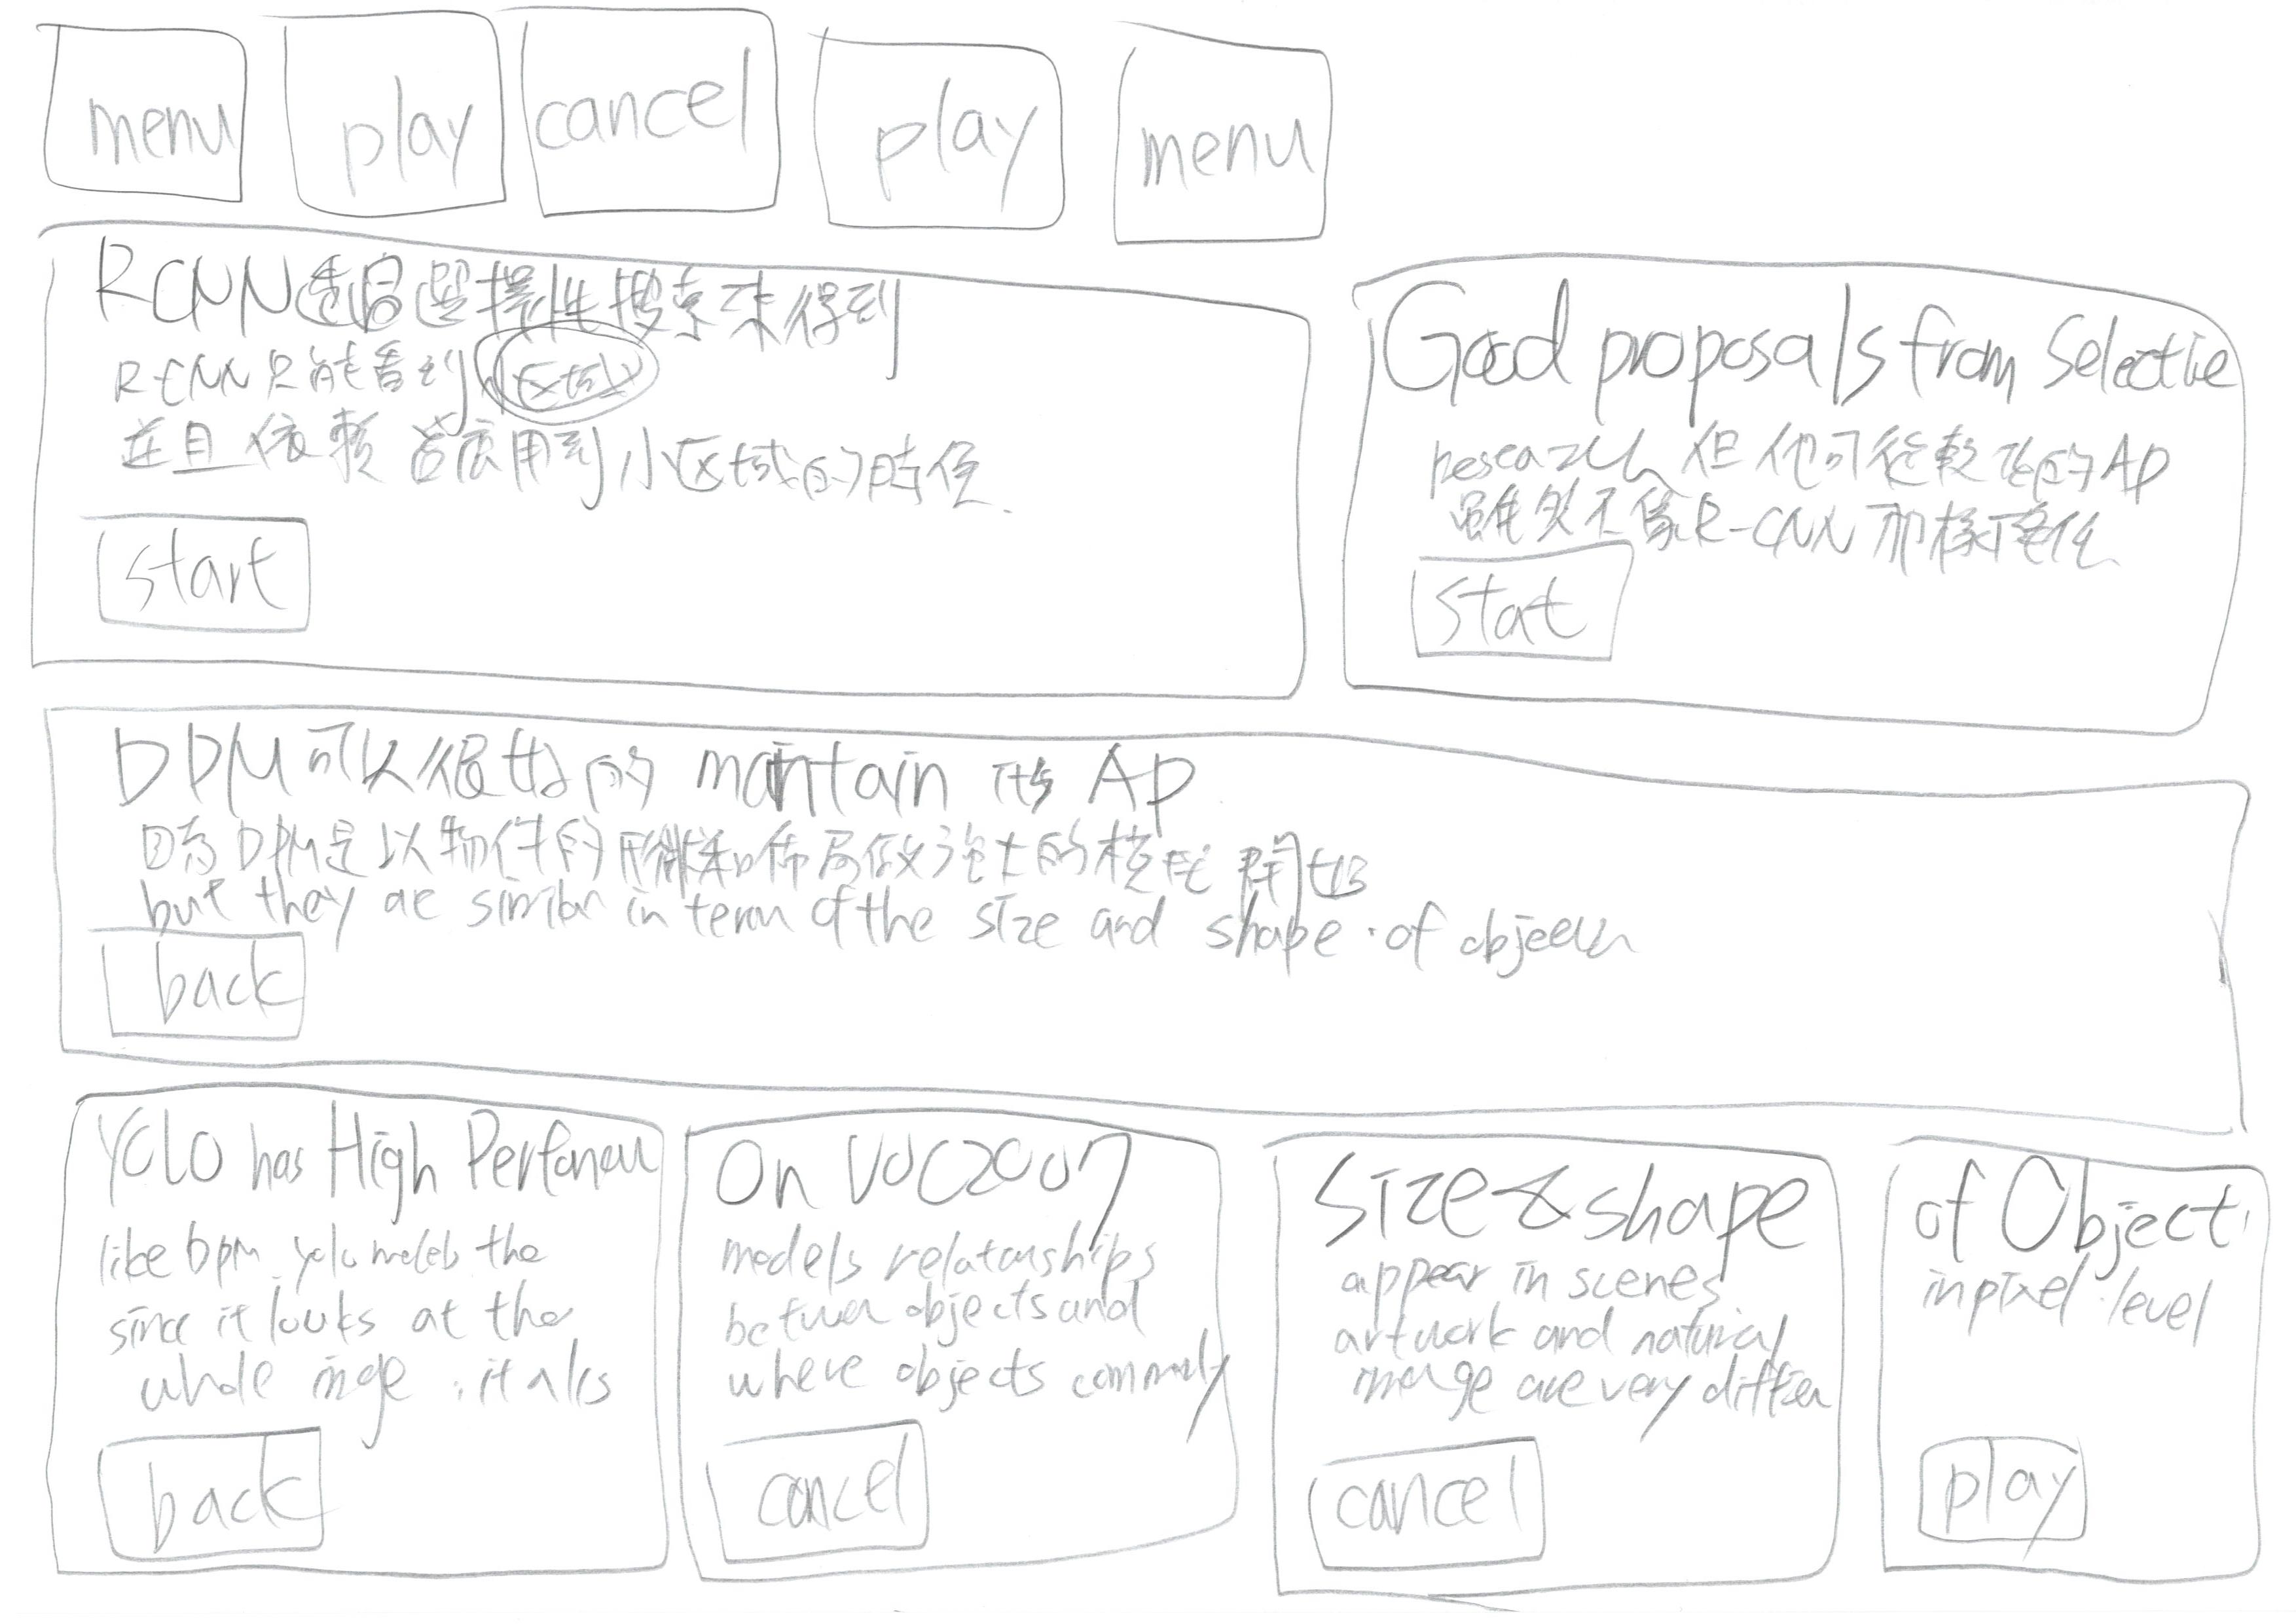 menu
play
cancel
play
menu
RCNN透過選擇性搜索來得到
RCNN只能看到區域
並且依賴 當應用到小区域的時候
start
Good proposals from Selective
但他可從較 的AP
雖然不像R-CNN那樣
Stat
DPM可以很好的 maintain its AP
因為DPM是以物件的形狀和佈局做強大的模型開始
but they are similar in term of the size and shape of
back
YOLO has High
like Dpm yolo the
since it looks at the
whole it
back
On VOC2007
models relationships
between objects and
where objects commonly
cancel
Size & shape
appear in scenes
artwork and natural
image are very
cancel
of Object
in pixel level
play